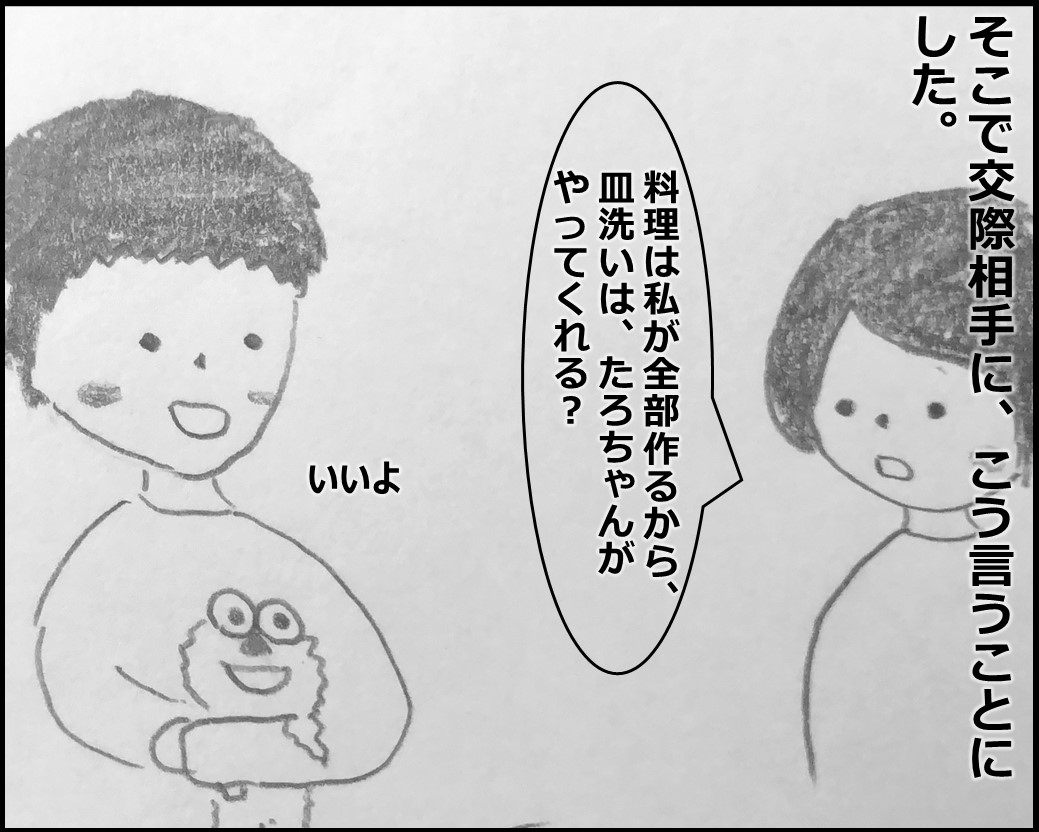 そこで交際相手に、こう言うことに
した。
料理は私が全部作るから、
皿洗いは、たろちゃんが
やってくれる？
いいよ